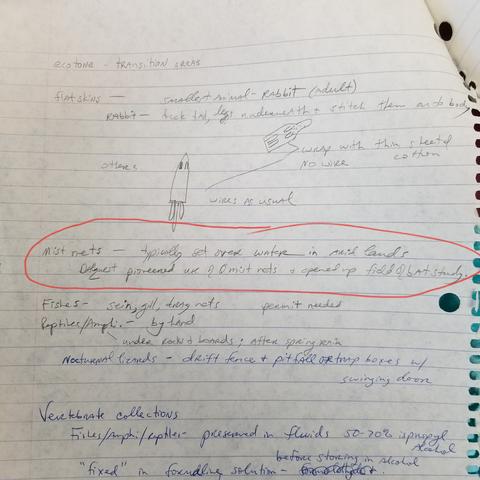 ecotone - transition areas
flat skins - smallest animal - Rabbit (adult)
Rabbit - tuck tail, legs underneath + stitch them onto body
wrap with thin sheet of cotton
No wire
others
wires as usual
Mist nets - typically set over water in arid lands
pioneered use of mist nets + opened up field of bat study.
Fishes - sein, gill, drag nets permit needed
Reptiles/Amphi. - by hand
under rocks + boards; after spring rain
Nocturnal lizards - drift fence + pitfall or trap boxes w/
swinging door
Vertebrate collections
Fishes/Amphi/reptiles - preserved in fluids 50-70% isopropyl
Alcohol
before storing in alcohol
"fixed" in formdling solution -